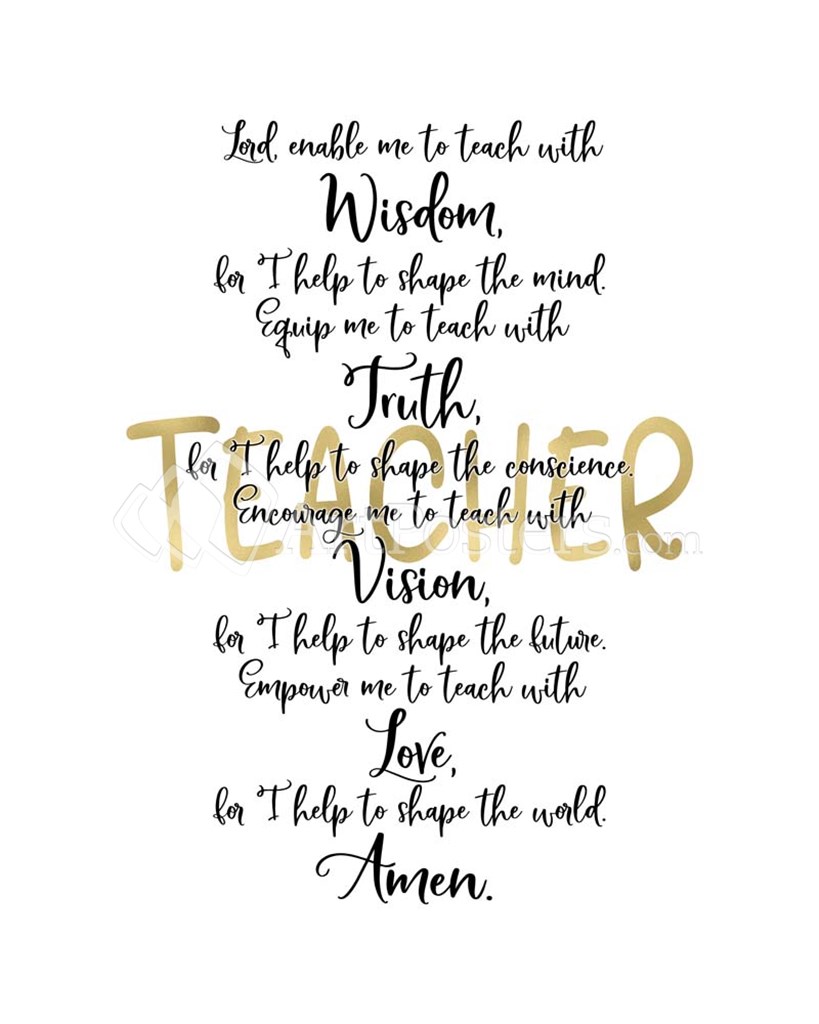 Lord, enable me to teach with
Wisdom,
for I help to shape the mind.
Equip me to teach with
Truth,
TEACHER
for I help to shape the conscience.
Encourage me to teach with
ArtPosters.com
Vision,
for I help to shape the future.
Empower me to teach with
Love,
for I help to shape the world.
Amen.